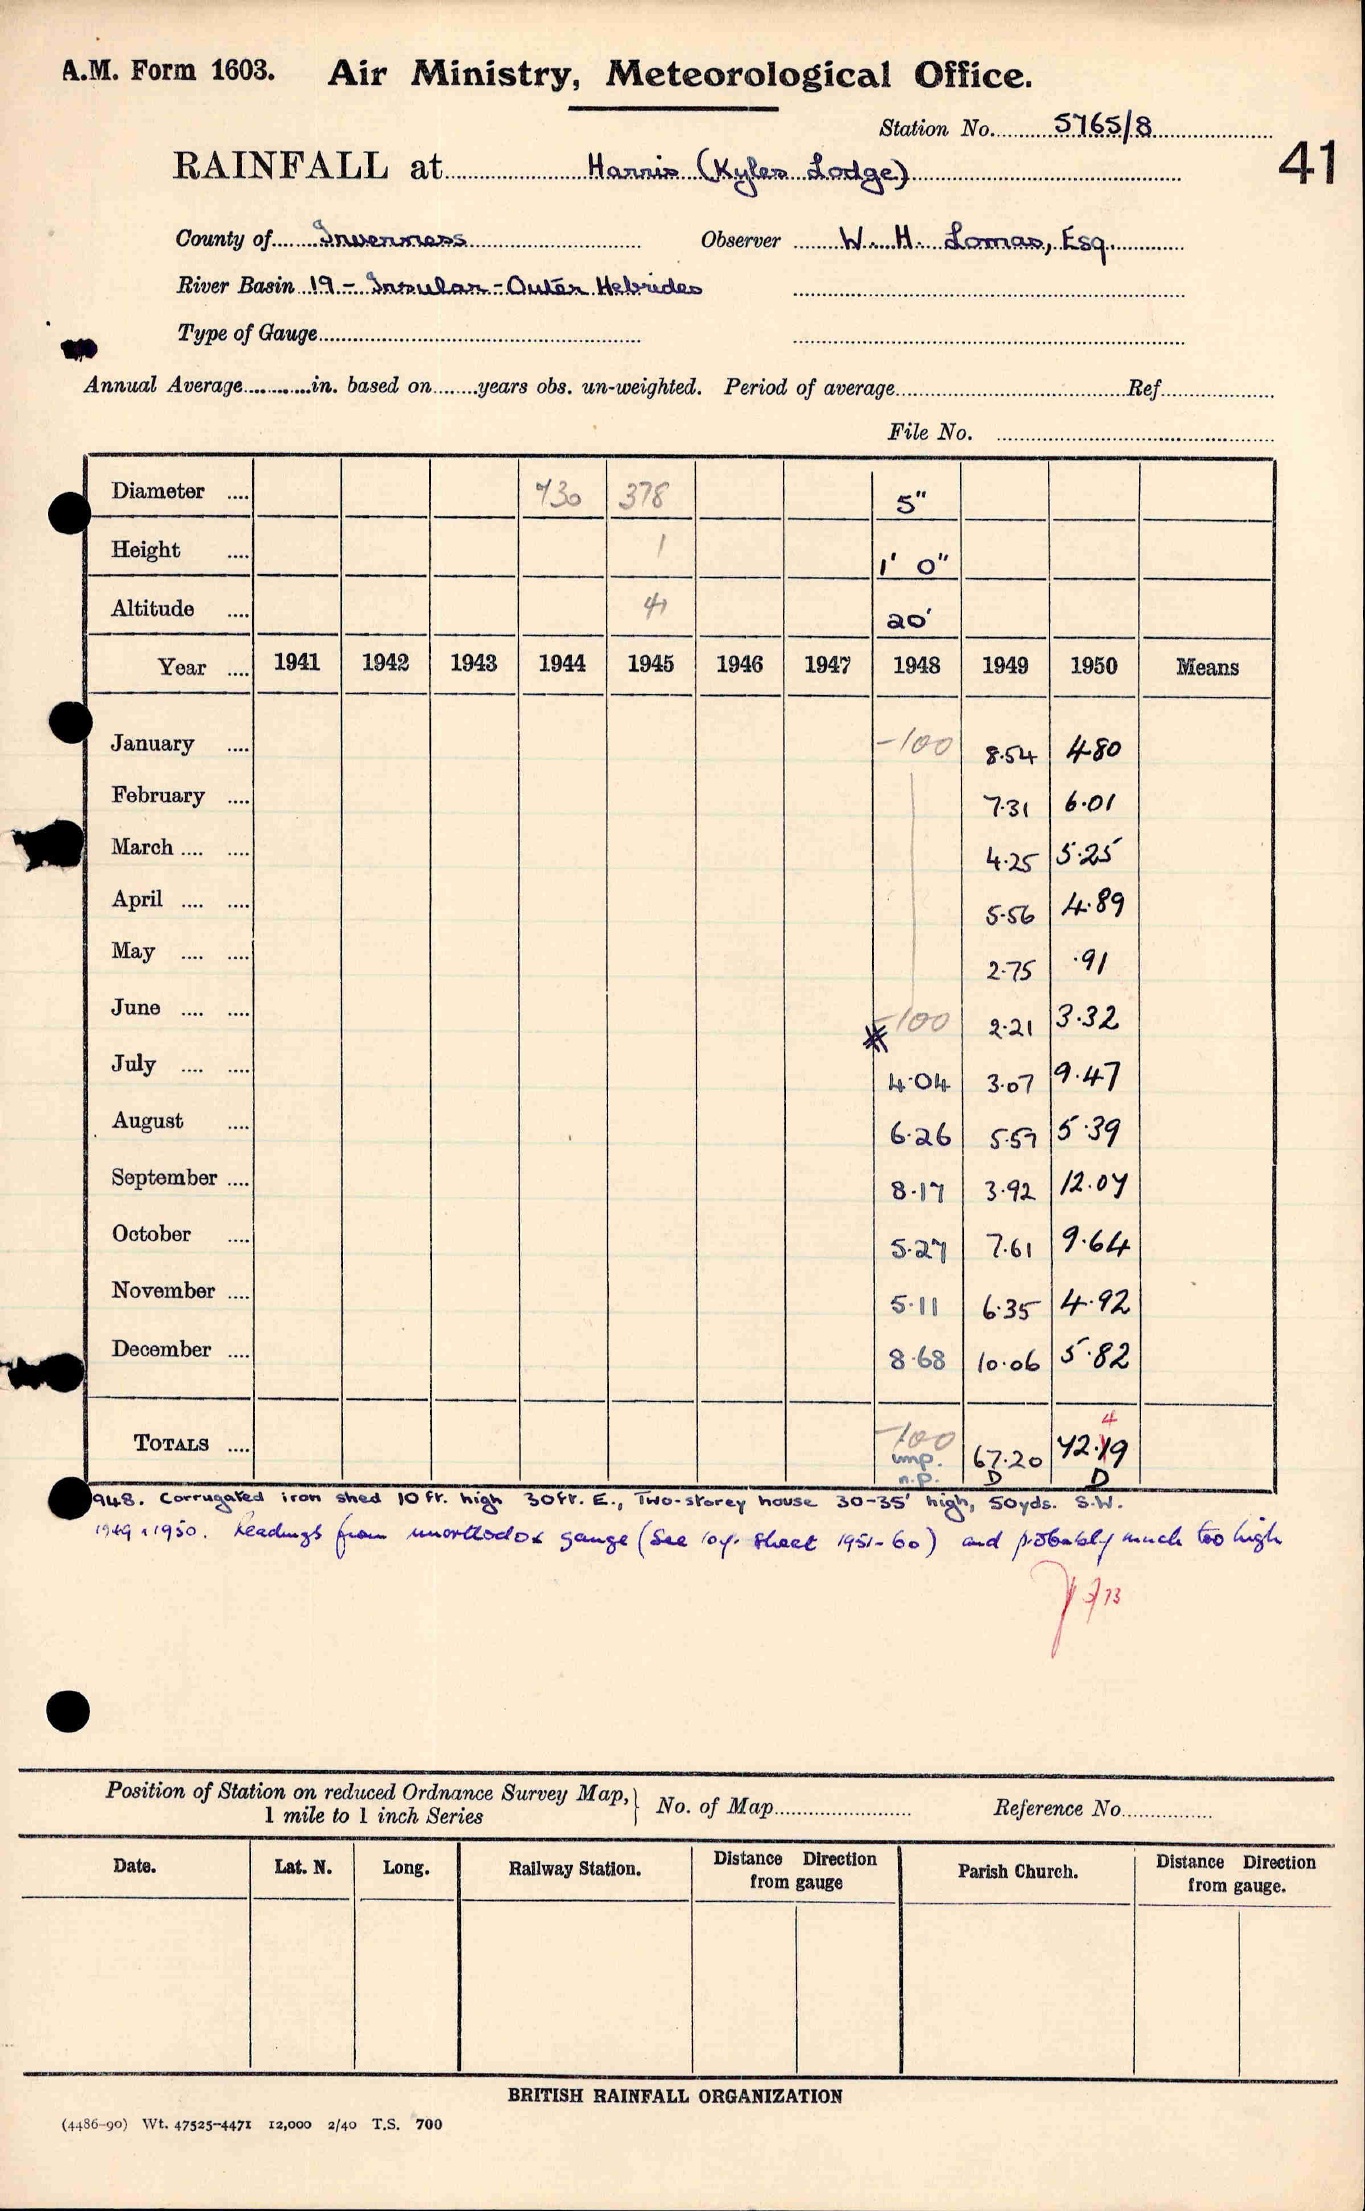 A.M. Form 1603. Air Ministry, Meteorological Office.
Station No. 5765/8
41
RAINFALL at Harris (Kyles Lodge)
County of Inverness Observer W. H. Lomas, Esq.
River Basin 19 - Insular - Outer Hebrides
Type of Gauge
Annual Average in. based on years obs. un-weighted. Period of average Ref
File No.
Diameter 730 378 5"
Height 1 1' 0"
Altitude 41 20'
Year 1941 1942 1943 1944 1945 1946 1947 1948 1949 1950 Means
January -100 8.54 4.80
February 7.31 6.01
March 4.25 5.25
April 5.56 4.89
May 2.75 .91
June -100 2.21 3.32
July 4.04 3.07 9.47
August 6.26 5.57 5.39
September 8.17 3.92 12.07
October 5.27 7.61 9.64
November 5.11 6.35 4.92
December 8.68 10.06 5.82
4
TOTALS -100 67.20 72.19
imp.
n.p. D D
1948. Corrugated iron shed 10 ft. high 30ft. E., Two-storey house 30-35' high, 50yds. S.W.
1949 & 1950. Readings from unorthodox gauge (See 10y. sheet 1951-60) and probably much too high
Position of Station on reduced Ordnance Survey Map, No. of Map Reference No.
1 mile to 1 inch Series
Date. Lat. N. Long. Railway Station. Distance Direction from gauge Parish Church. Distance Direction from gauge.
BRITISH RAINFALL ORGANIZATION
(4486-90) Wt. 47525-4471 12,000 2/40 T.S. 700